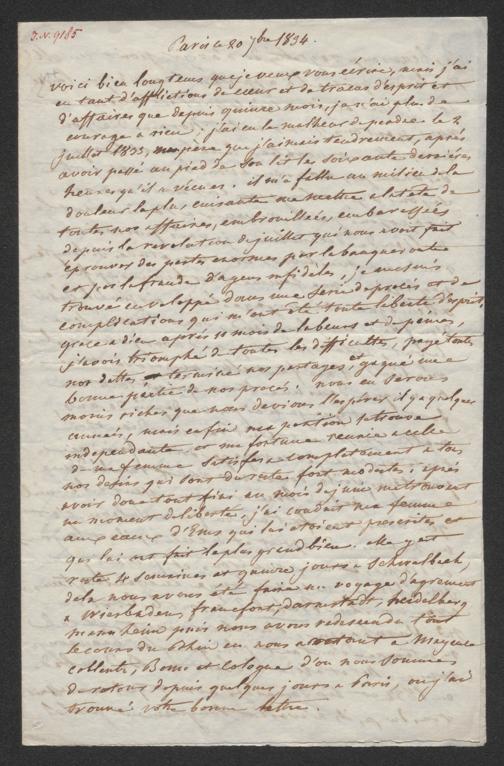 J.N. 9185
Paris ce 20 7bre 1834.
voici bien longtems que je veux vous écrire, mais j'ai
eu tant d'afflictions de cœur et de tracas d'esprit et
d'affaires que depuis quinze mois, je n'ai plus de
courage a rien, j'ai eu le malheur de perdre le 2
juillet 1833, mon pere que j'aimais tendrement, après
avoir passé au pied de son lit les soixante dernières
heures qu'il a vécues. il m'a fallu au milieu de la
douleur la plus cuisante me mettre a la tete de
toutes nos affaires, embrouillées, embarassées
depuis la revolution de juillet qui nous avoit fait
éprouver des pertes enormes par la banqueroute
et par la fraude d'agens infideles, je me suis
trouvé enveloppé dans une serie de procès et de
complications qui m'ont oté toute liberté d'esprit,
grace a dieu après 11 mois de labeurs et de peines,
j'avois triomphé de toutes les difficultés, payé toutes
nos dettes terminé nos partages, et gagné une
bonne partie de nos procès. nous en serons
moins riches que nous devions l'esperer il y a quelques
années, mais enfin ma position se trouve
independante et ma fortune reunie a celle
de ma femme satisfera completement a tous
nos desirs qui sont du reste fort modestes. après
avoir donc tout fini au mois de juin me trouvant
un moment de liberté, j'ai conduit ma femme
aux eaux d'Ems qui lui etoient prescrites et
qui lui ont fait le plus grand bien. elle y est
resté 4 semaines et quinze jours a Schwalbach,
de la nous avons été faire un voyage d'agrement
a Wiesbaden, francfort, darmstadt, heidelberg
mannheim puis nous avons redescendu tout
le cours du Rhin en nous arretant a Mayence
Coblentz, Bonn et Cologne d'ou nous sommes
de retour depuis quelques jours a Paris, ou j'ai
trouvé votre bonne lettre.